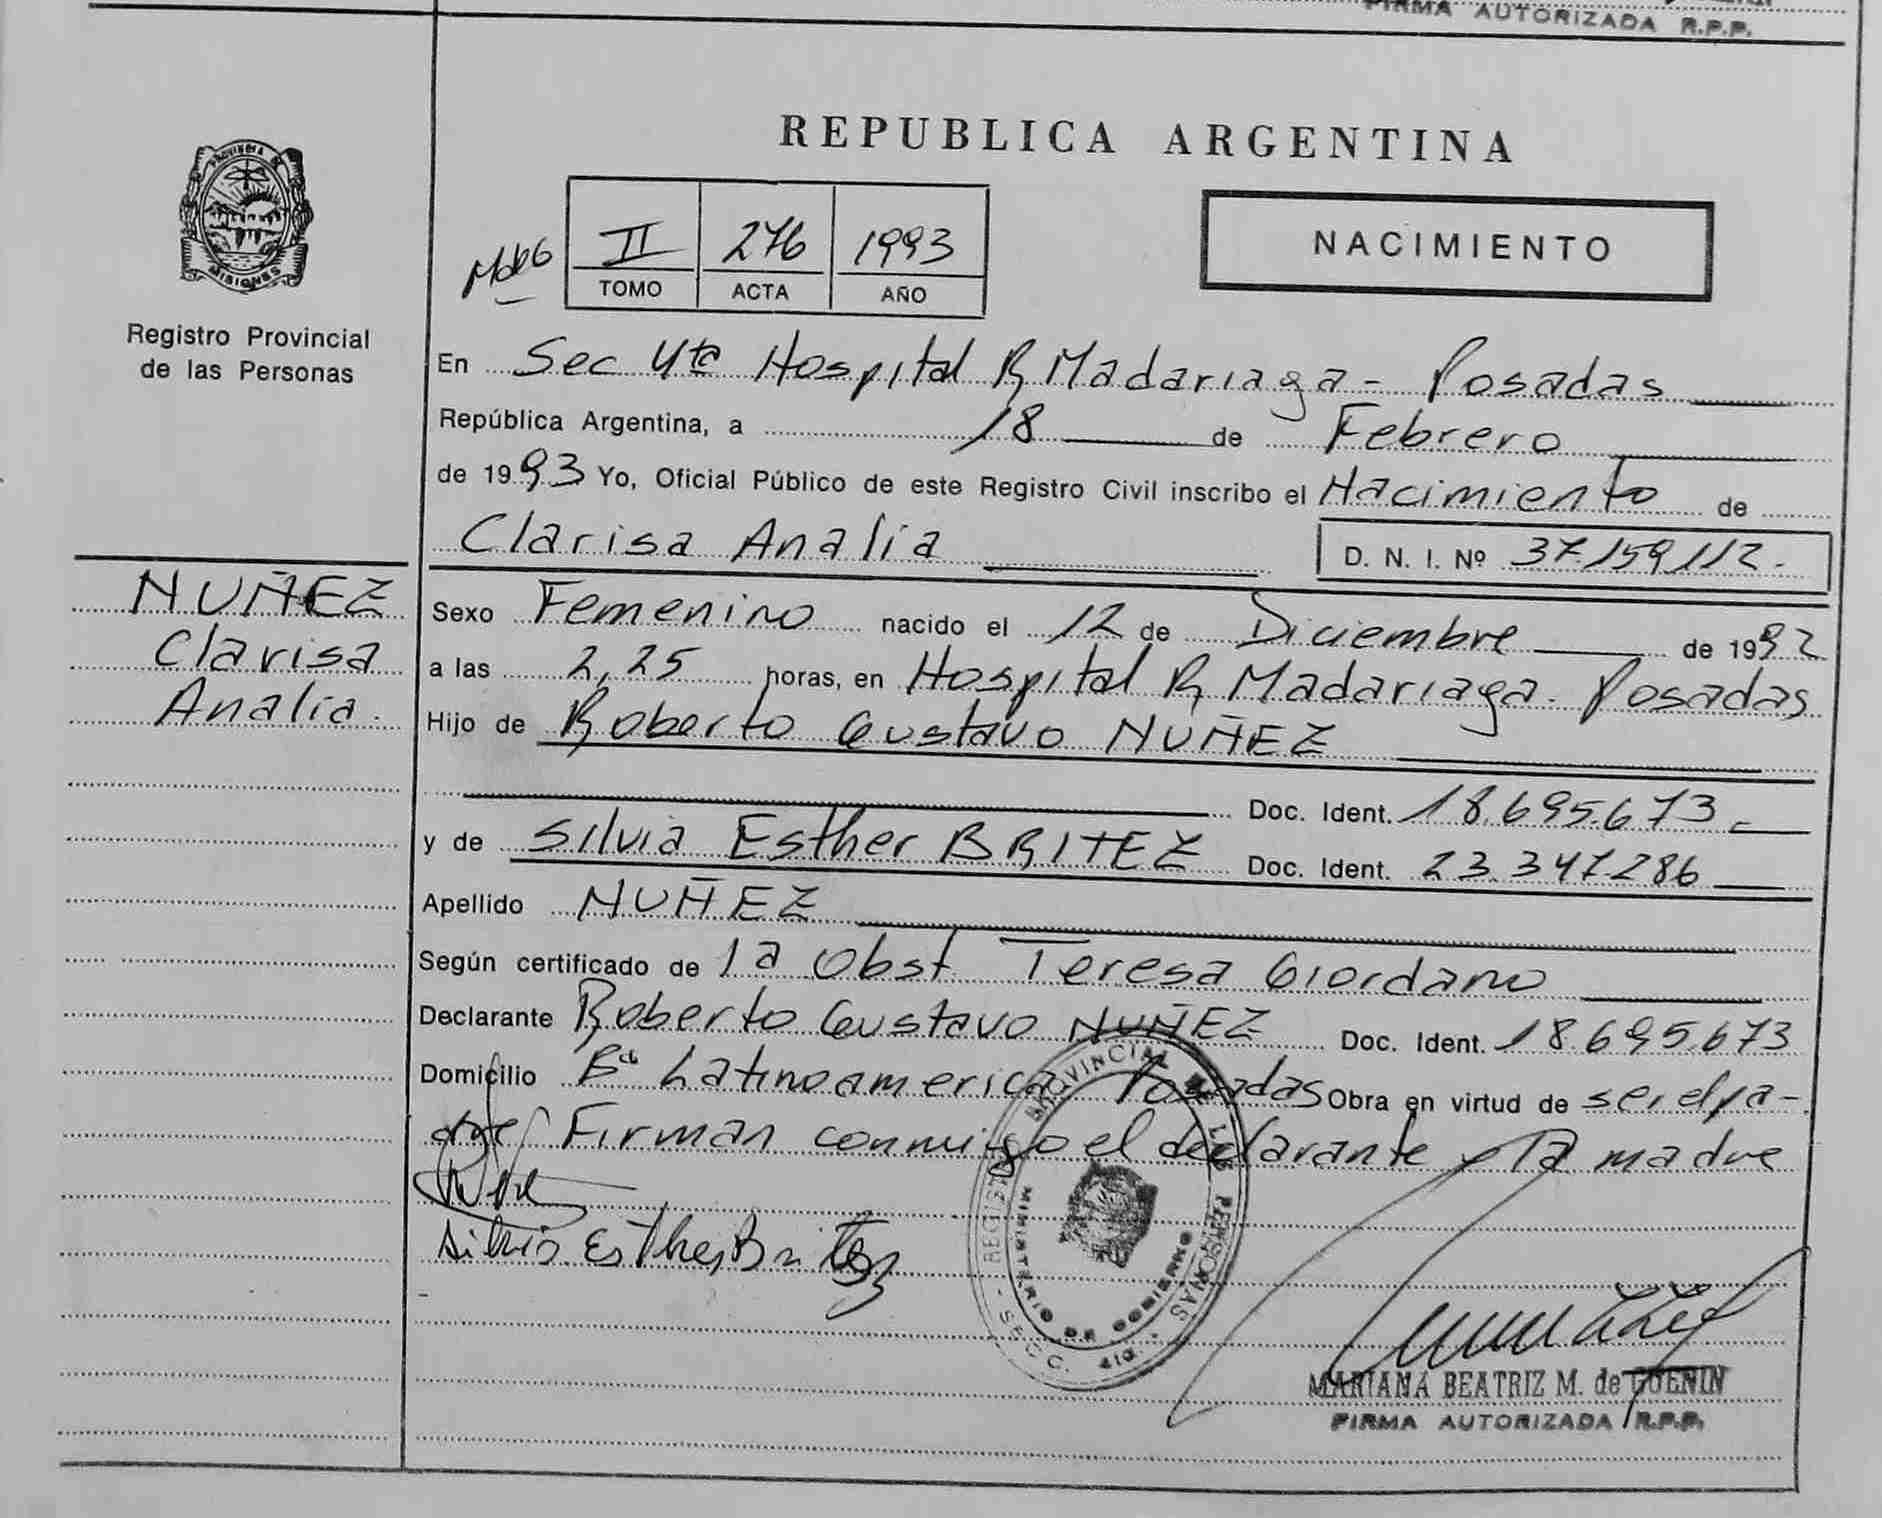 FIRMA AUTORIZADA R.P.P.
REPUBLICA ARGENTINA
PROVINCIA DE
MISIONES
Registro Provincial
de las Personas
II 276 1993
TOMO ACTA AÑO
NACIMIENTO
En Sec 4ta Hospital R Madariaga - Posadas
República Argentina, a 18 de Febrero
de 1993 Yo, Oficial Público de este Registro Civil inscribo el Nacimiento de
Clarisa Analía D. N. I. Nº 37.159.112.
NUÑEZ
Clarisa
Analia.
Sexo Femenino nacido el 12 de Diciembre de 1992
a las 2,25 horas, en Hospital R Madariaga. Posadas
Hijo de Roberto Gustavo NUÑEZ
Doc. Ident. 18.695.673.-
y de Silvia Esther BRITEZ Doc. Ident. 23.347.286
Apellido NUÑEZ
Según certificado de la Obst Teresa Giordano
Declarante Roberto Gustavo NUÑEZ Doc. Ident. 18.695.673
Domicilio Bº Latinoamerica Posadas Obra en virtud de ser el pa-
dre Firman conmigo el declarante y la madre
Silvia Esther Britez
REGISTRO PROVINCIAL DE LAS PERSONAS
MINISTERIO DE GOBIERNO
MARIANA BEATRIZ M. de GUENIN
FIRMA AUTORIZADA R.P.P.